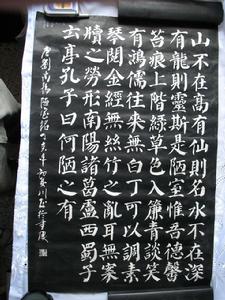 山不在高有仙則名水不在深
有龍則靈斯是陋室惟吾德馨
苔痕上階綠草色入簾青談笑
有鴻儒往來無白丁可以調素
琴閱金經無絲竹之亂耳無案
牘之勞形南陽諸葛盧西蜀子
云亭孔子曰何陋之有
唐劉禹錫陋室銘